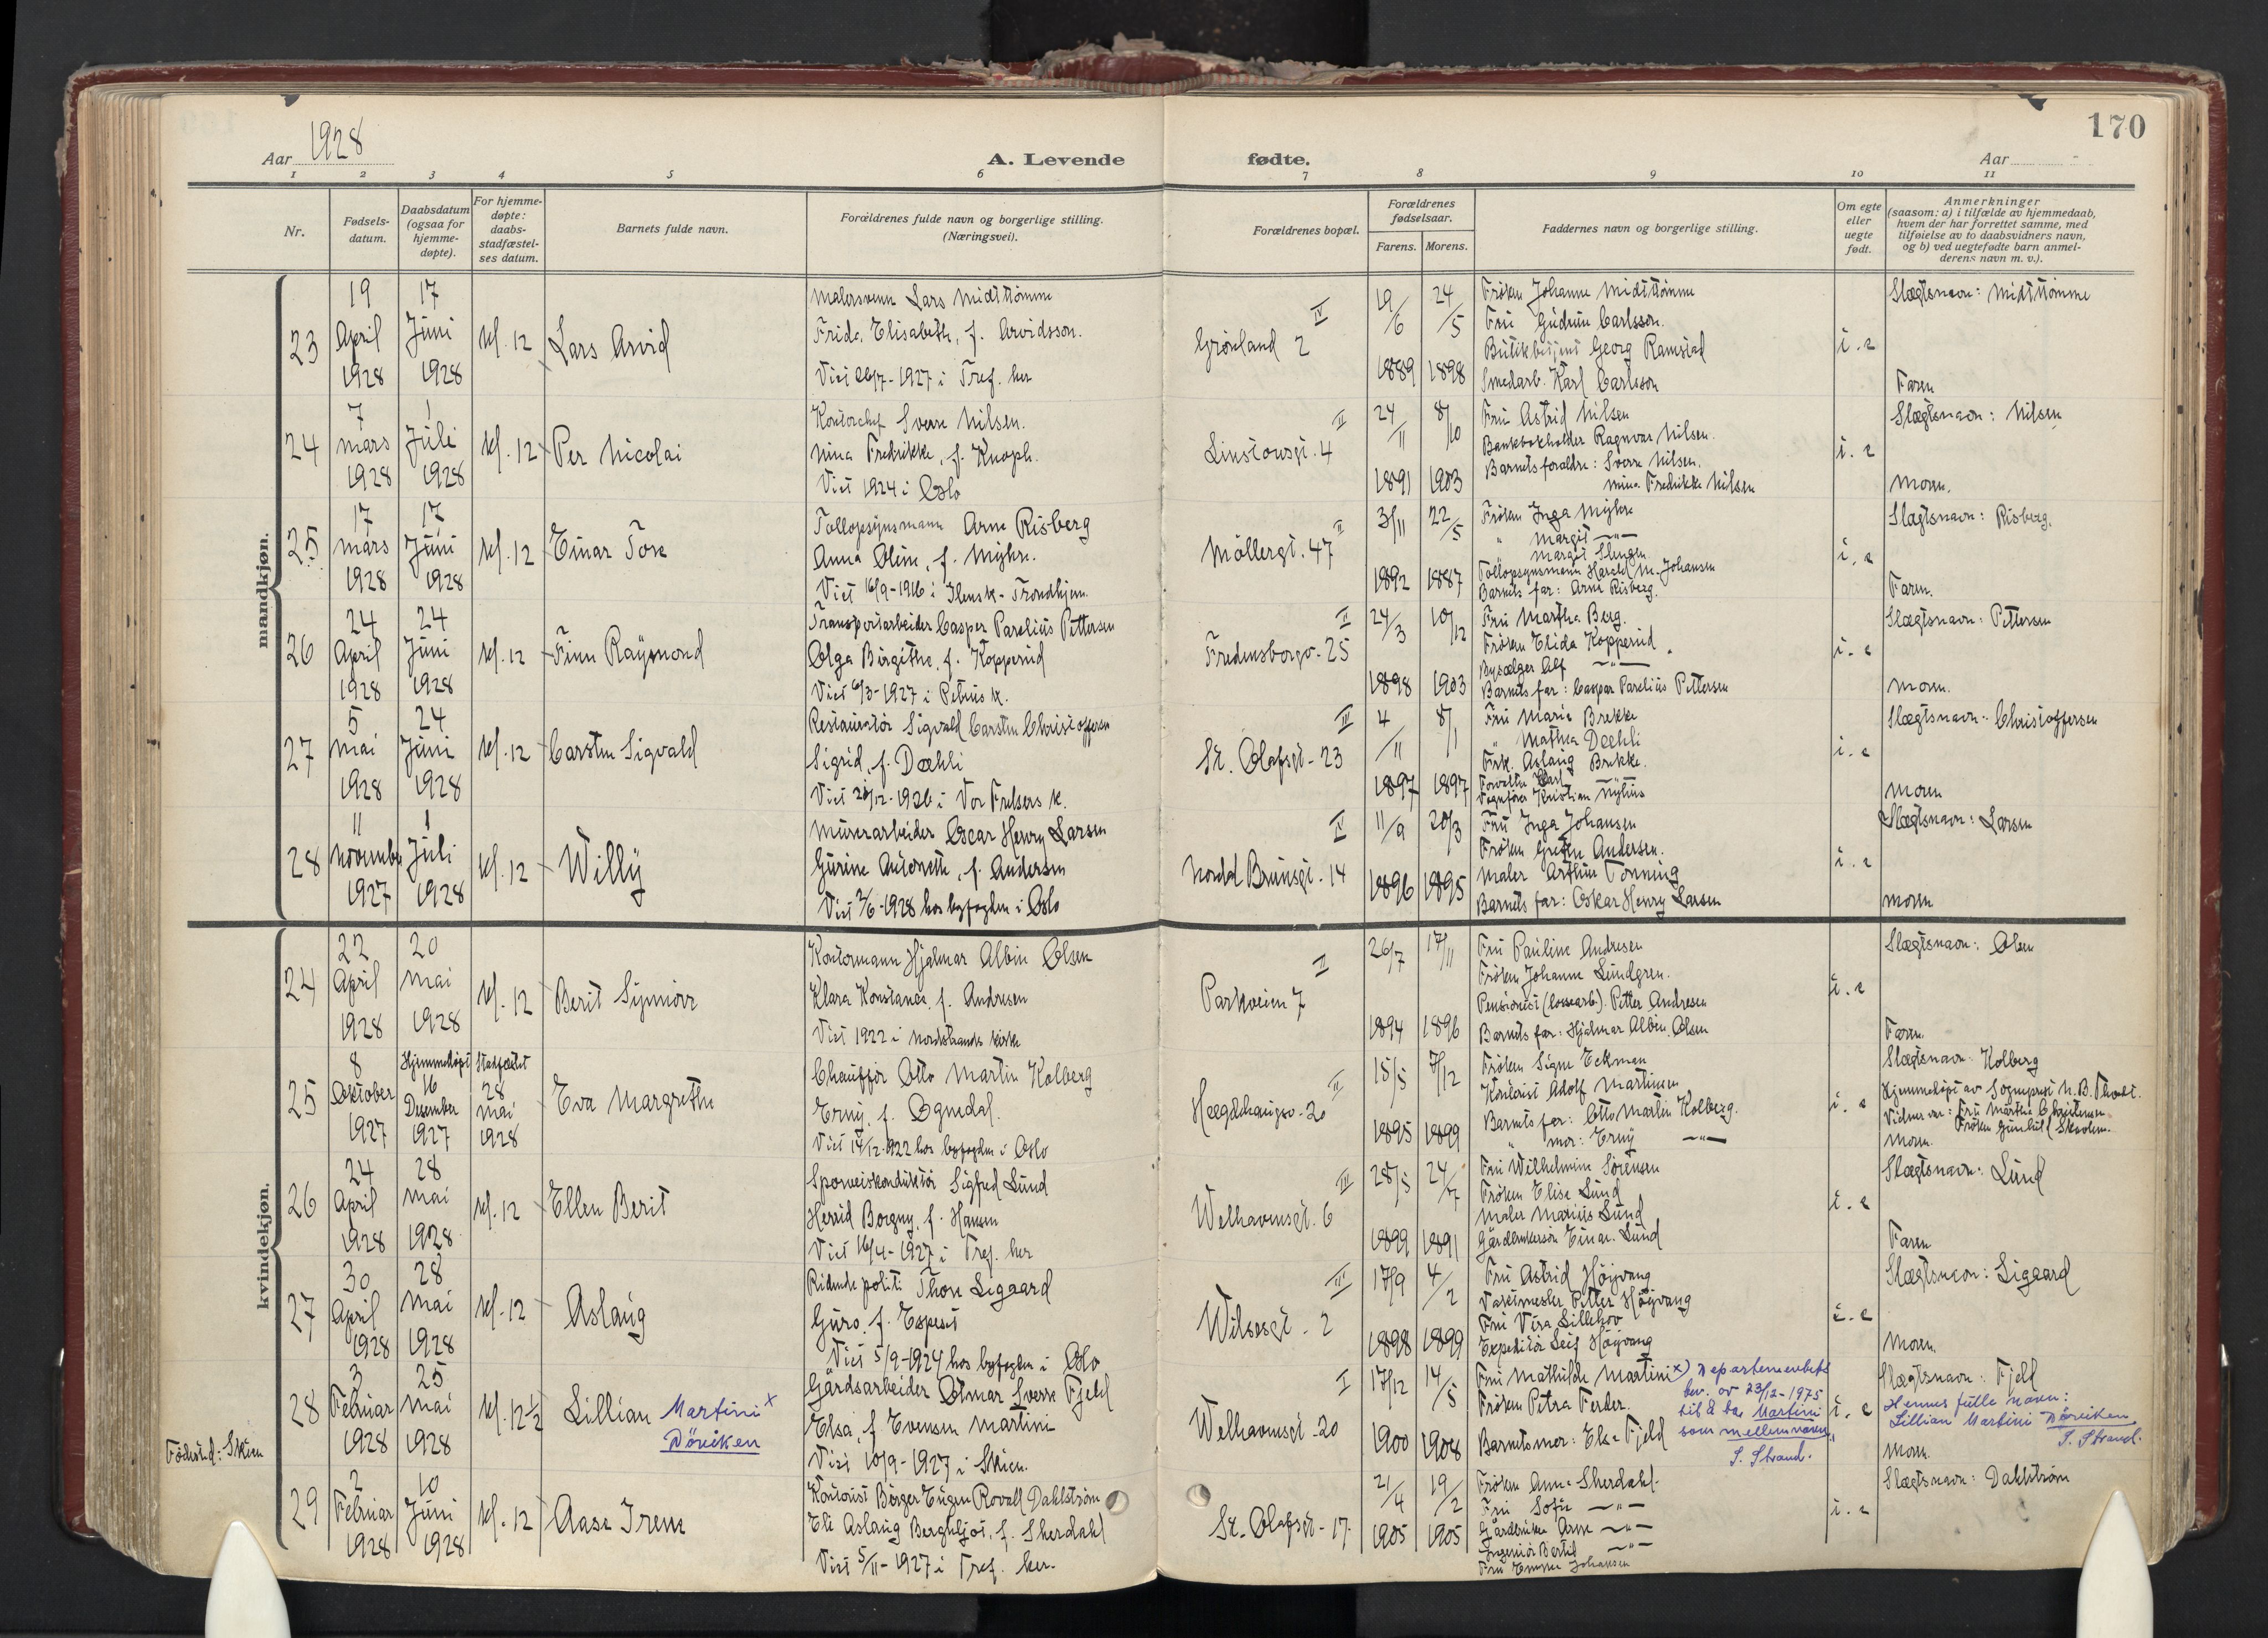 170
Aar 1928
A. Levende fødte.
Aar
1 2 3 4 5 6 7 8 9 10 11
Nr.
Fødsels-
datum.
Daabsdatum
(ogsaa for
hjemme-
døpte).
For hjemme-
døpte:
daabs-
stadfæstel-
ses datum.
Barnets fulde navn.
Forældrenes fulde navn og borgerlige stilling.
(Næringsvei).
Forældrenes bopæl.
Forældrenes
fødselsaar.
Farens. Morens.
Faddernes navn og borgerlige stilling.
Om egte
eller
uegte
født.
Anmerkninger
(saasom: a) i tilfælde av hjemmedaab,
hvem der har forrettet samme, med
tilføielse av to daabsvidners navn,
og b) ved uegtefødte barn anmel-
derens navn m. v.).
mandkjøn.
23
19
April
1928
17
Juni
1928
kl. 12
Lars Arvid
Malersvenn Lars Midttømme
Frida Elisabeth, f. Arvidsson.
Viet 26/7-1927 i Tref. her
IV
Grønland 2
19/6
1889
24/5
1898
Frøken Johanne Midttømme
Fru Gudrun Carlsson.
Butikbetjent Georg Ramstad
Smedarb. Karl Carlsson
i. e
Slægtsnavn: Midttømme
Faren
24
7
Mars
1928
1
Juli
1928
kl. 12
Per Nicolai
Kontorchef Sverre Nilsen.
Nina Fredrikke, f. Knoph.
Viet 1924 i Oslo
II
Linstowsgt. 4
24/11
1891
8/10
1903
Fru Astrid Nilsen
Bankbokholder Ragnvar Nilsen.
Barnets forældre: Sverre Nilsen.
Nina Fredrikke Nilsen
i. e
Slægtsnavn: Nilsen
Moren.
25
17
Mars
1928
17
Juni
1928
kl. 12
Einar Tore
Tollopsynsmann Arne Risberg
Anna Oline, f. Myhre.
Viet 16/9-1916 i Ilens k.- Trondhjem.
II
Møllergt. 47
3/11
1892
22/5
1887
Frøken Inga Myhre
" Margit -"-
" Margit Slengen
Tollopsynsmann Harald M. Johansen
Barnets far: Arne Risberg.
i. e
Slægtsnavn: Risberg.
Faren.
26
24
April
1928
24
Juni
1928
kl. 12
Finn Raymond
Transportarbeider Casper Parelius Pettersen
Olga Birgithe, f. Kopperud
Viet 6/3-1927 i Petrus k.
II
Fredensborgv. 25
24/3
1898
10/12
1903
Fru Martha Berg.
Frøken Elida Kopperud.
Bysælger Alf -"-
Barnets far: Casper Parelius Pettersen
i. e
Slægtsnavn: Pettersen
Moren.
27
5
Mai
1928
24
Juni
1928
kl. 12
Carsten Sigvald
Restauratør Sigvald Carsten Christoffersen
Sigrid, f. Dæhli
Viet 21/12-1926 i Vor Frelsers k.
III
St. Olafsgt. 23
4/11
1897
8/1
1897
Fru Marie Brekke
" Mathea Dæhli
Frk. Aslaug Brekke.
Kristian Nylius
i. e
Slægtsnavn: Christoffersen
Moren
28
11
November
1927
1
Juli
1928
kl. 12
Willy
Murerarbeider Oscar Henry Larsen
Gurine Antonette, f. Andersen
Viet 2/6-1928 hos byfogden i Oslo
IV
Nordal Brunsgt. 14
11/9
1896
20/3
1895
Fru Inga Johansen
Frøken Grethe Andersen.
Maler Arthur Tonning
Barnets far: Oskar Henry Larsen
i. e
Slægtsnavn: Larsen
Moren
kvindekjøn.
24
22
April
1928
20
Mai
1928
kl. 12
Berit Synnøve
Kontormann Hjalmar Albin Olsen
Klara Konstance, f. Andresen
Viet 1922 i Nordstrands kirke
II
Parkveien 7
26/7
1894
17/11
1896
Fru Pauline Andresen
Frøken Johanne Lundgren.
Pensionist (lossearb.). Petter Andresen
Barnets far: Hjalmar Albin Olsen
i. e
Slægtsnavn: Olsen
Faren.
25
8
Oktober
1927
Hjemmedøpt
16
Desember
1927
Stadfæstet
28
Mai
1928
Eva Margrethe
Chauffør Otto Martin Kolberg
Erny, f. Ognedal.
Viet 14/12-1922 hos byfogden i Oslo
II
Hegdehaugsv. 20
15/5
1895
7/12
1899
Frøken Signe Eckman
Kontorist Adolf Martinsen
Barnets far: Otto Martin Kolberg.
" mor: Erny -"-
i. e
Slægtsnavn: Kolberg
Hjemmedøpt av Sogneprest N. B. Tvedt.
Vidner var: Fru Martha Christensen
Frøken Gunhild Skolem.
Moren.
26
24
April
1928
28
Mai
1928
kl. 12
Ellen Berit
Sporveiskonduktør Sigfred Lund
Herrid Borgny, f. Hansen
Viet 16/4-1927 i Tref. her
III
Welhavensgt. 6
28/5
1899
24/7
1891
Fru Wilhelmine Sørensen
Frøken Elise Lund
Maler Marius Lund
Gårdbrukersøn Einar Lund
i. e
Slægtsnavn: Lund
Faren
27
30
April
1928
28
Mai
1928
kl. 12
Aslaug
Ridende politi Thore Ligaard
Guro, f. Espeset
Viet 5/9-1924 hos byfogden i Oslo
III
Wilsesgt. 2
17/9
1898
4/2
1899
Fru Astrid Høyvang
Vaktmester Petter Høyvang
Fru Vira Lillehov
Expeditør Leif Høyvang
i. e
Slægtsnavn: Ligaard
Moren.
Fødested: Skien
28
3
Februar
1928
25
Mai
1928
kl. 12½
Lillian Martini x
Döviken
Gårdsarbeider Otmar Sverre Fjeld
Elsa, f Evensen Martini
Viet 10/9-1927 i Skien.
I
Welhavensgt. 20
17/12
1900
14/5
1908
Fru Mathilde Martini
Frøken Petra Ferder.
Barnets mor: Elsa Fjeld
x) Departementets
bev. av 23/12-1975
til å ta Martini
som mellemnavn.
S. Strand.
i. e
Slægtsnavn: Fjeld
Hennes fulle navn:
Lillian Martini Döviken
S. Strand.
Moren.
29
2
Februar
1928
10
Juni
1928
kl. 12
Aase Irene
Kontorist Børger Eugen Rovall Dahlstrøm
Eli Aslaug Bergliot, f. Skerdahl
Viet 5/11-1927 i Tref. her.
St. Olafsgt. 17.
21/4
1905
19/2
1905
Frøken Anna Skerdahl.
Fru Sofie -"-
Gårdbruker Arne -"-
Ingeniør Bertil -"-
Fru Emma Johansen
i. e
Slægtsnavn: Dahlstrøm